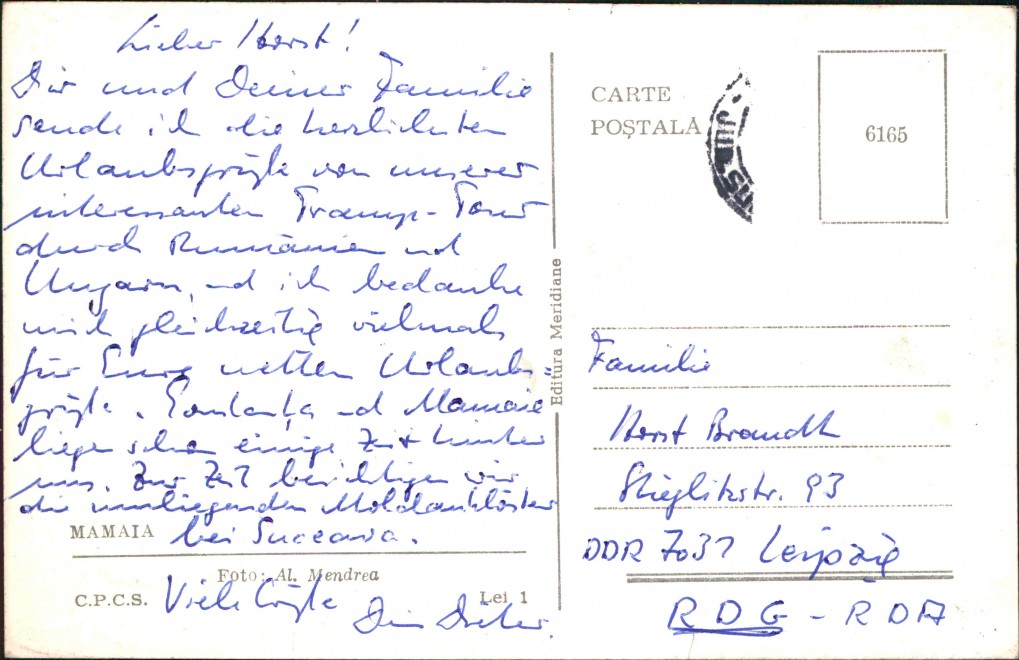 Lieber Horst!
Dir und Deiner Familie
sende ich die herzlichsten
Urlaubsgrüße von unserer
interessanten Tramp-Tour
durch Rumänien und
Ungarn, und ich bedanke
mich gleichzeitig vielmals
für Eure netten Urlaubs=
grüße. Constanţa und Mamaia
liegen schon einige Zeit hinter
uns. Zur Zeit besichtigen wir
die umliegenden Moldauklöster
bei Suceava.
MAMAIA
Foto: Al. Mendrea
C.P.C.S.
Lei 1
Viele Grüße
Dein Dieter.
Editura Meridiane
CARTE
POŞTALĂ
6165
Familie
Horst Brandt
Stieglitzstr. 93
DDR 7031 Leipzig
RDG - RDA